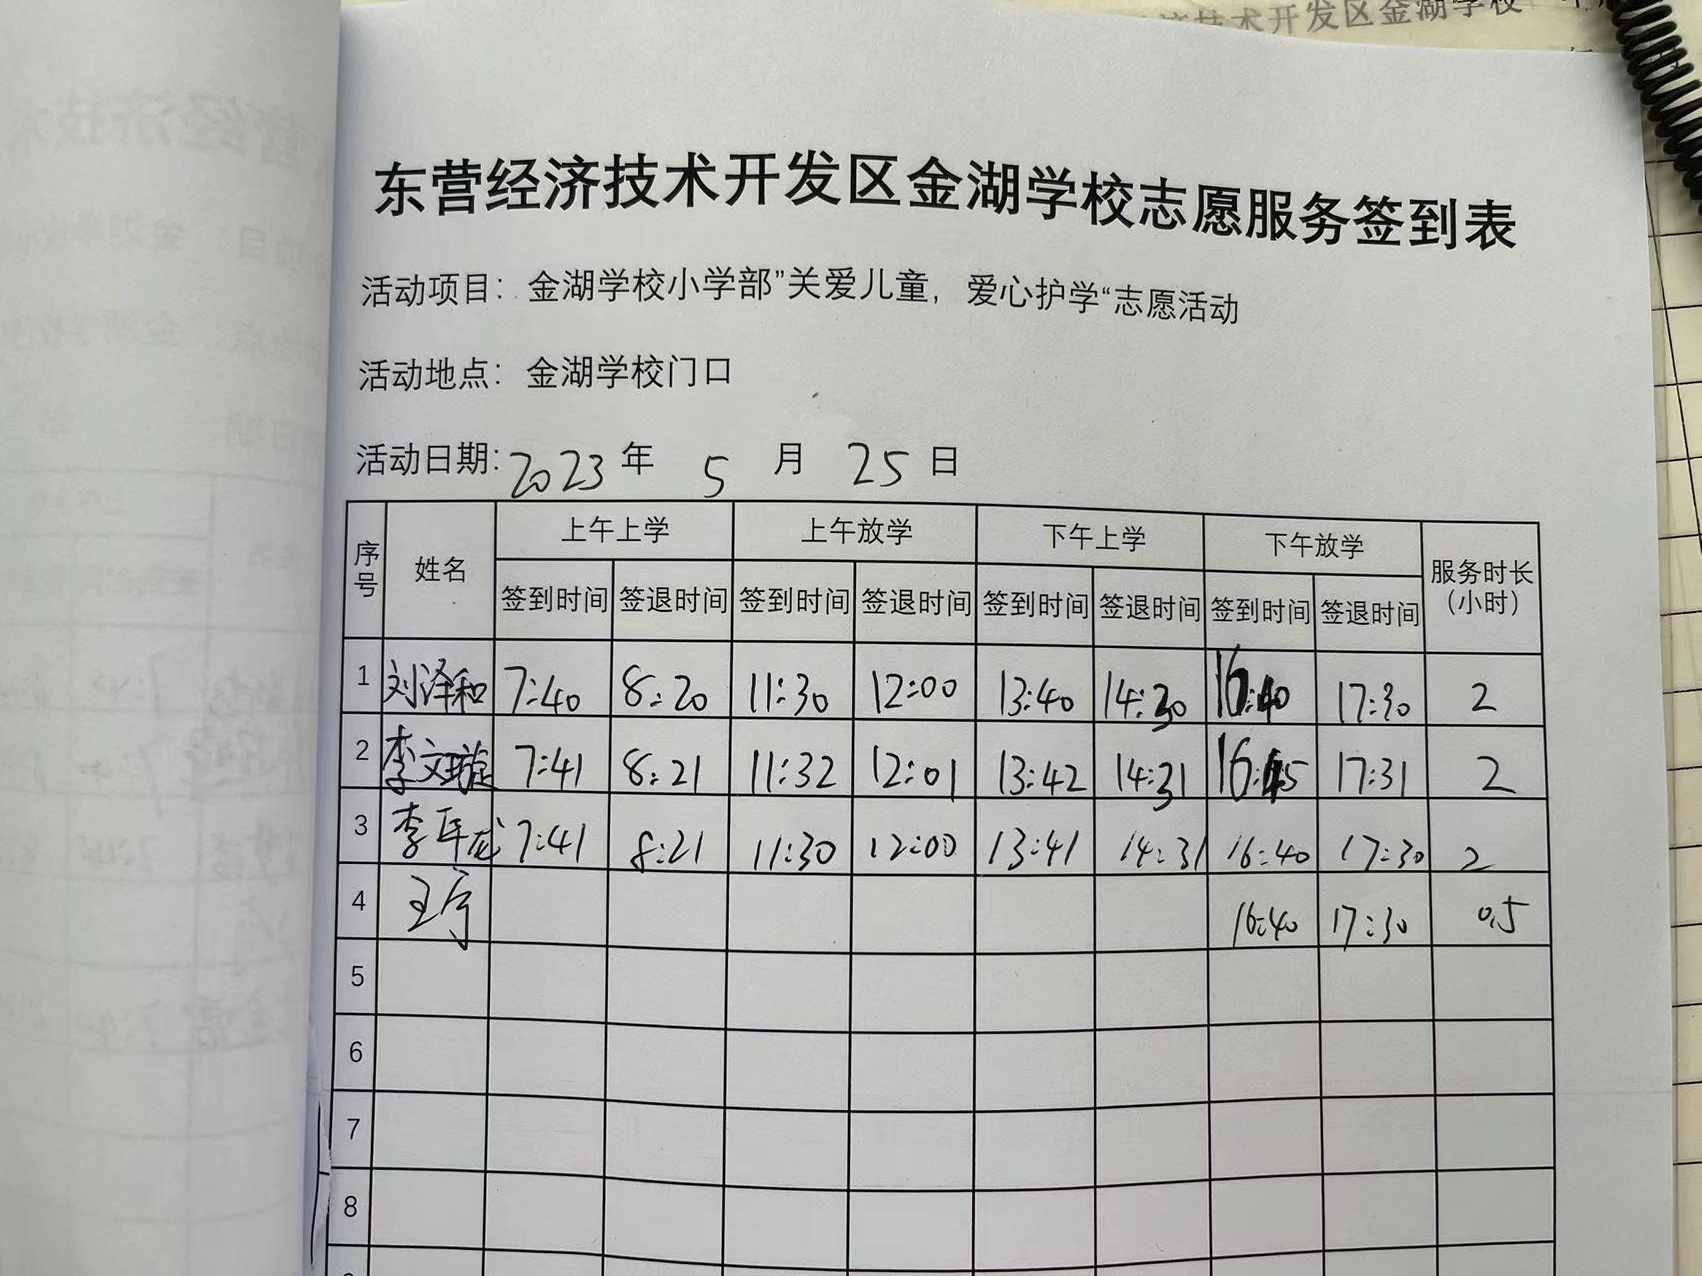 济技术开发区金湖学校
东营经济技术开发区金湖学校志愿服务签到表
活动项目：金湖学校小学部”关爱儿童，爱心护学“志愿活动
活动地点：金湖学校门口
活动日期:2023年 5 月 25日
序号 姓名 上午上学 上午放学 下午上学 下午放学 服务时长（小时）
签到时间 签退时间 签到时间 签退时间 签到时间 签退时间 签到时间 签退时间
1 刘泽和 7:40 8:20 11:30 12:00 13:40 14:30 16:40 17:30 2
2 李文璇 7:41 8:21 11:32 12:01 13:42 14:31 16:45 17:31 2
3 李 7:41 8:21 11:30 12:00 13:41 14:31 16:40 17:30 2
4 王 16:40 17:30 0.5
5
6
7
8